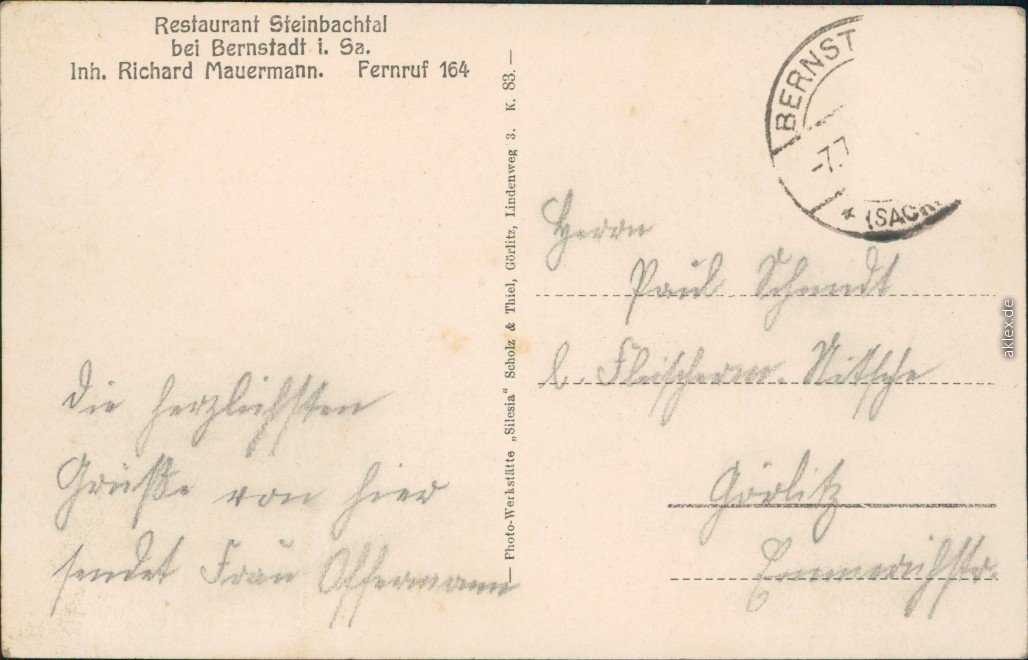 Restaurant Steinbachtal
bei Bernstadt i. Sa.
Inh. Richard Mauermann. Fernruf 164
— Photo-Werkstätte „Silesia“ Scholz & Thiel, Görlitz, Lindenweg 3. K. 83. —
BERNST
-7.7
* (SACH.
Herrn
Paul Schmidt
b. Fleischerm. Nitsche
Görlitz
Emmerichstr.
Die herzlichsten
Grüße von hier
sendet Frau Offermann
aklex.de